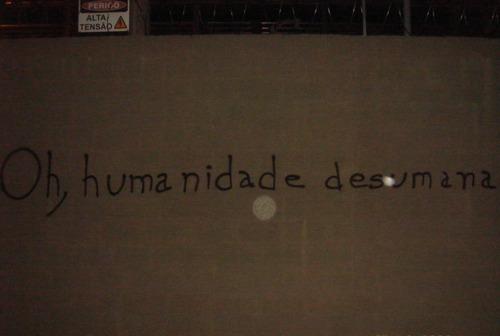 PERIGO
ALTA
TENSÃO
Oh, humanidade desumana